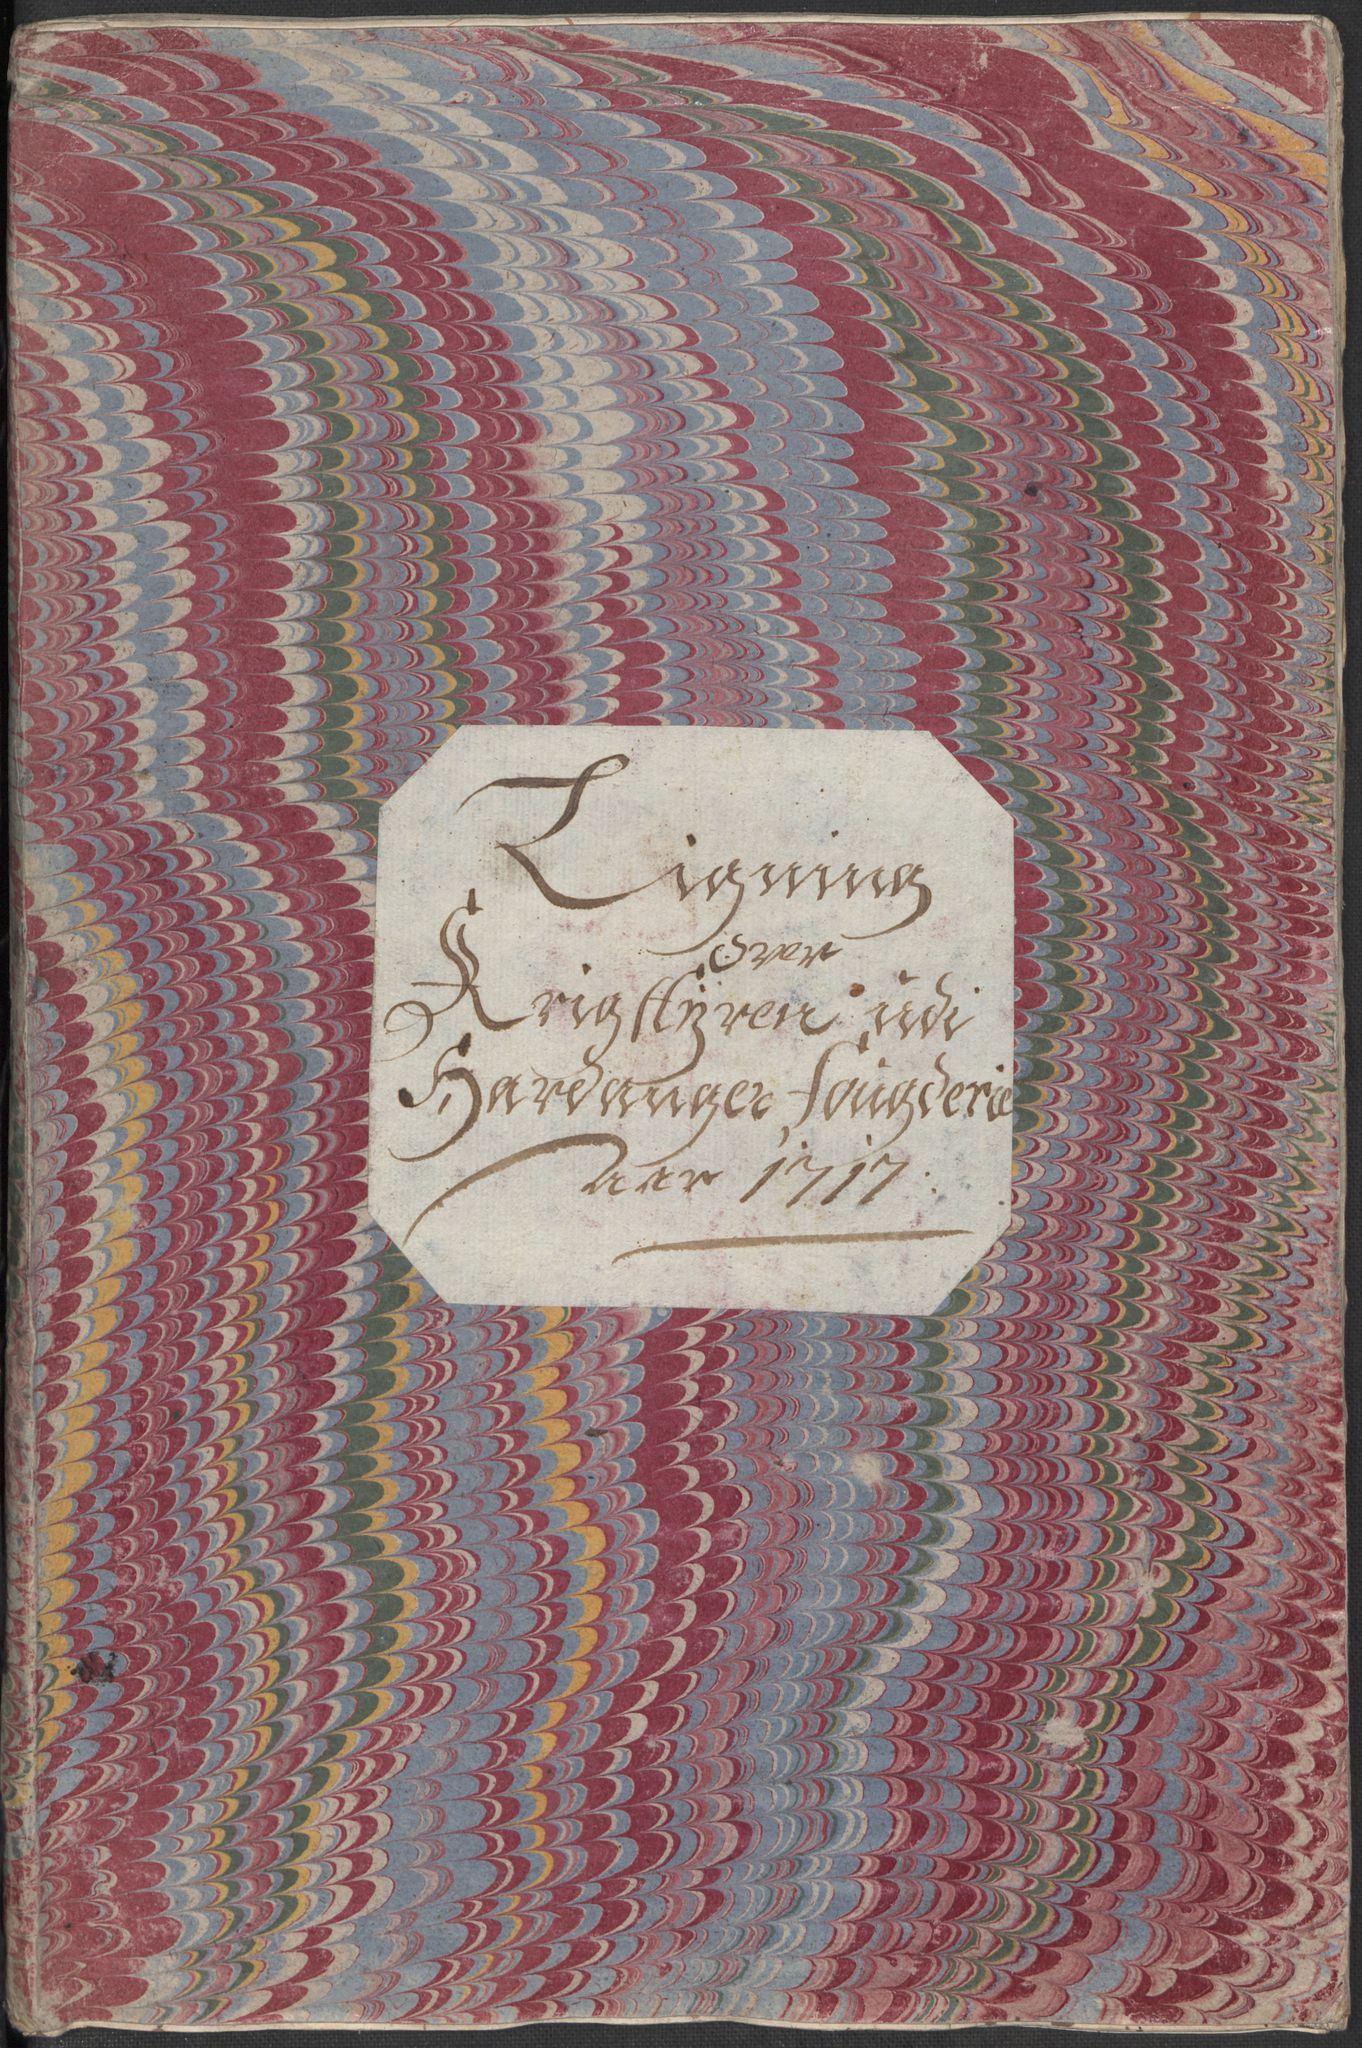 Ligning
over
Krigstyren udi
Hardanger fougderie
aar 1717: